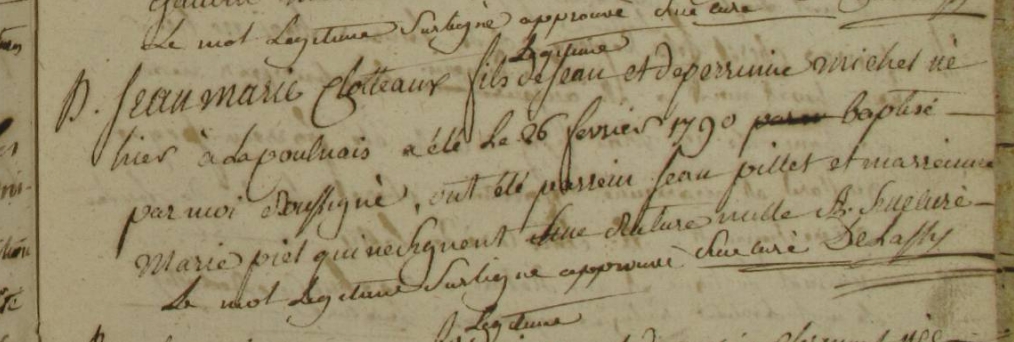 Le mot Legitime Surligné approuvé Sue curé
Legitime
B. Jean marie Clotteaux fils de Jean et de perrinne michel né
hier à la poulnais a été Le 26 fevrier 1790 baptisé
par moi Soussigné, ont été parrein Jean pillet et marreinne
Marie piel qui ne Signent Une rature nulle Sue curé
Le mot Legitime Surligné approuvé Sue curé De Lassy
Legitime